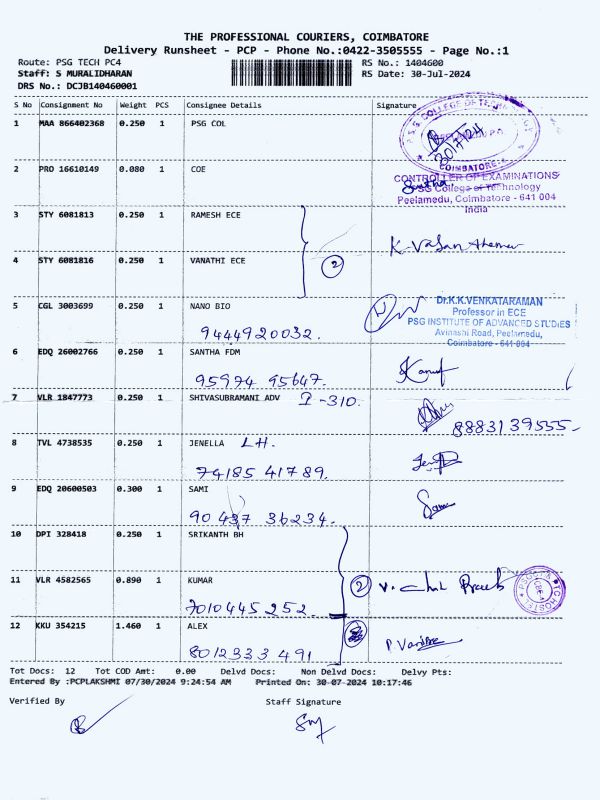 THE PROFESSIONAL COURIERS, COIMBATORE
Delivery Runsheet - PCP - Phone No.:0422-3505555 - Page No.:1
Route: PSG TECH PC4 RS No.: 1404600
Staff: S MURALIDHARAN RS Date: 30-Jul-2024
DRS No.: DCJB140460001
S No Consignment No Weight PCS Consignee Details Signature
1 MAA 866402368 0.250 1 PSG COL
P.S.G. COLLEGE OF TECHNOLOGY
30/7/24
COIMBATORE-4
2 PRO 16610149 0.080 1 COE
CONTROLLER OF EXAMINATIONS
PSG College of Technology
Peelamedu, Coimbatore - 641 004
India
3 STY 6081813 0.250 1 RAMESH ECE
4 STY 6081816 0.250 1 VANATHI ECE
2
5 CGL 3003699 0.250 1 NANO BIO
9444920032.
Dr.K.K.VENKATARAMAN
Professor in ECE
PSG INSTITUTE OF ADVANCED STUDIES
Avinashi Road, Peelamedu,
Coimbatore - 641 004
6 EDQ 26002766 0.250 1 SANTHA FDM
95974 95647.
7 VLR 1847773 0.250 1 SHIVASUBRAMANI ADV I-310.
8883139555-
8 TVL 4738535 0.250 1 JENELLA LH.
74185 41789.
9 EDQ 20600503 0.300 1 SAMI
90 437 36234.
10 DPI 328418 0.250 1 SRIKANTH BH
11 VLR 4582565 0.890 1 KUMAR
2
7010445252.
12 KKU 354215 1.460 1 ALEX
8012333491
Tot Docs: 12 Tot COD Amt: 0.00 Delvd Docs: Non Delvd Docs: Delvy Pts:
Entered By :PCPLAKSHMI 07/30/2024 9:24:54 AM Printed On: 30-07-2024 10:17:46
Verified By Staff Signature